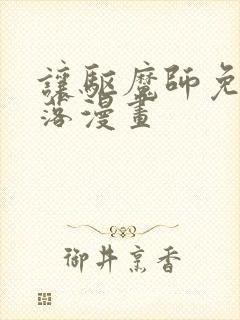 讓驅魔師免
洛漫畫
御井烹香